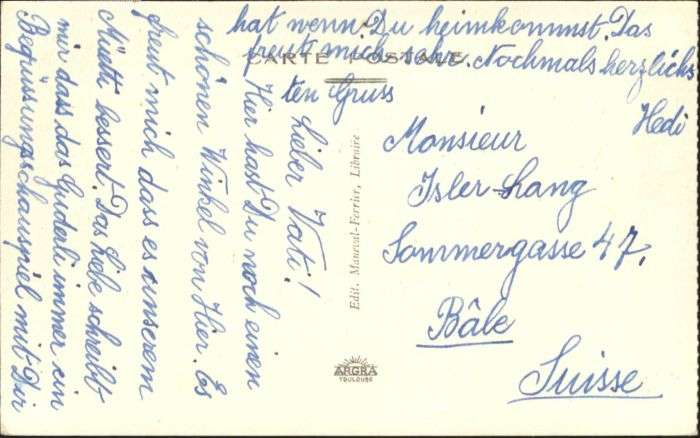 Lieber Vati!
Hier hast Du noch einen
schönen Winkel von Hier. Es
freut mich dass es unserem
Müetti bessert. Das liebe schreibt
mir dass das Guderli immer ein
Begüssungschauspiel mit Dir
hat wenn Du heimkommst. Das
freut mich sehr. Nochmals herzlichs
ten Gruss
Hedi
CARTE POSTALE
Edit. Manuval-Ferrier, Libraire
ARGRA
TOULOUSE
Monsieur
Isler-Lang
Sommergasse 47,
Bâle
Suisse